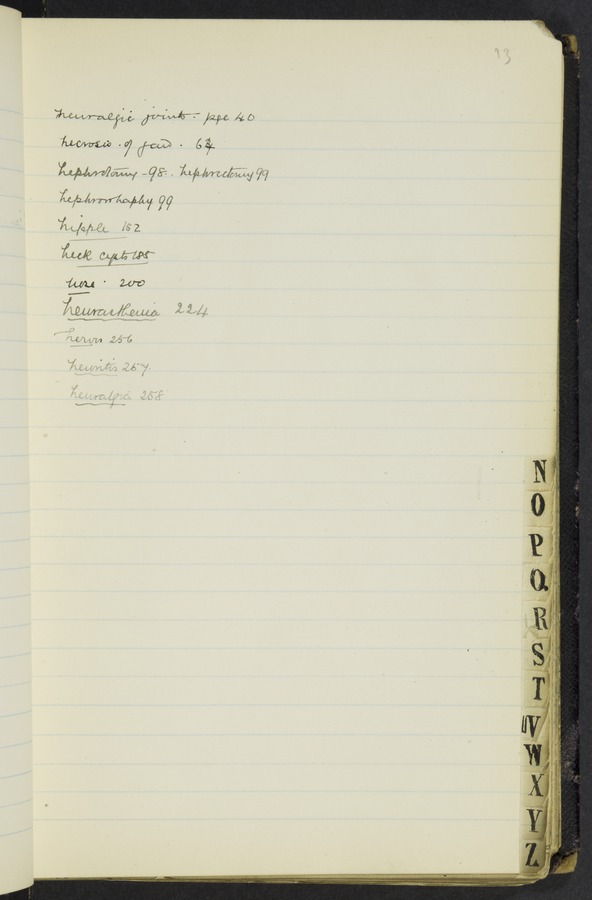 13
neuralgic joints. pge 40
necrosis. of jaw. 63
nephrotomy - 98. nephrectomy 99
nephrorrhaphy 99
nipple 152
neck cysts 185
nose. 200
neurasthenia 224
nerves 256
neuritis 257.
neuralgia 258
N
O
P
Q
R
S
T
UV
W
X
Y
Z